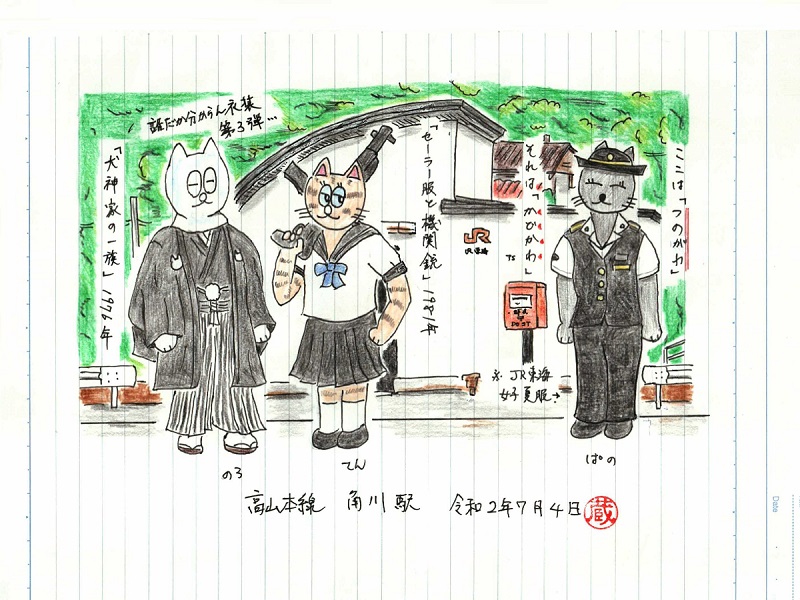 誰だか分からん衣装
第3弾…
「犬神家の一族」1976年
「セーラー服と機関銃」1981年
それは「かどかわ」
ここは「つのがわ」
JR
JR東海
POST
※JR東海
女子夏服→
のろ
てん
ぱの
高山本線 角川駅 令和2年7月4日
蔵